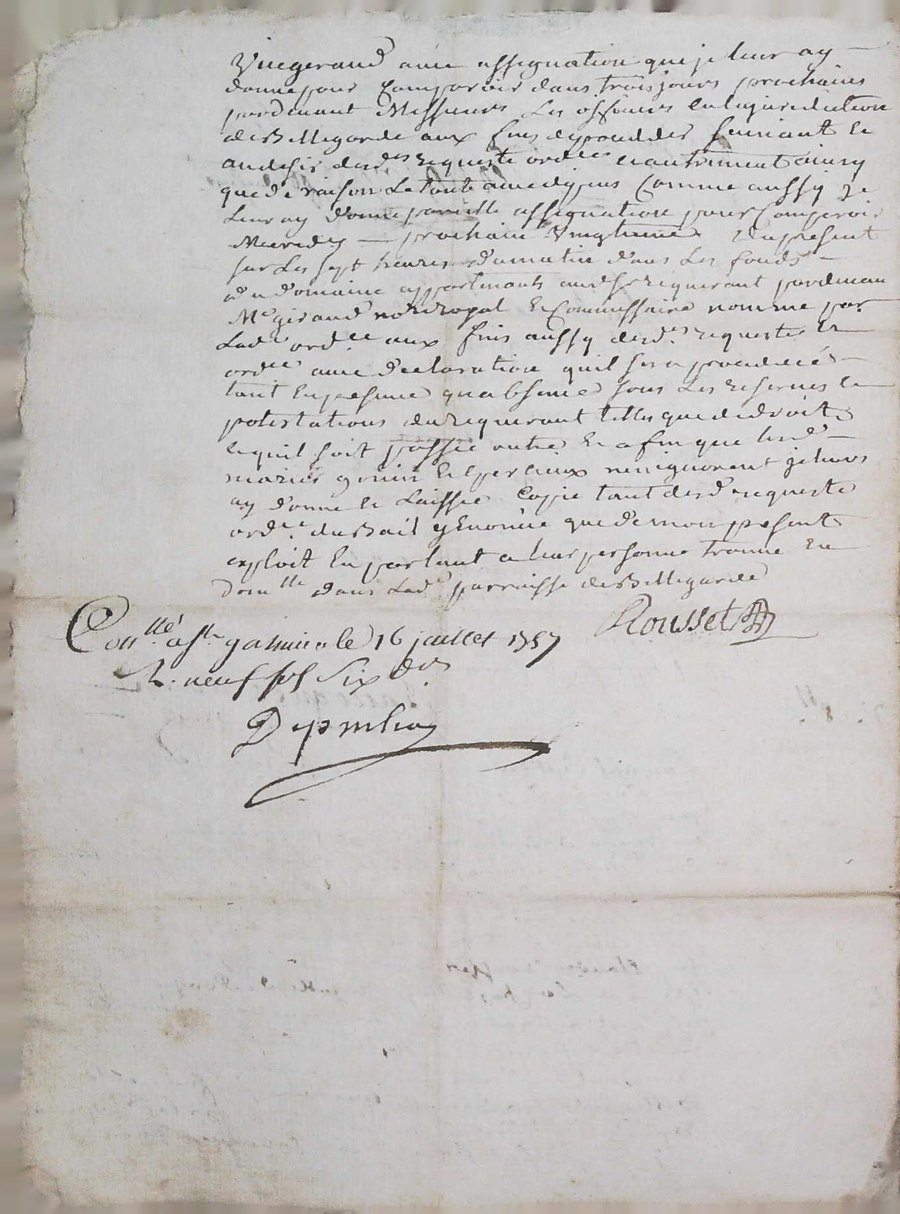 avec assignation que je leur ay
donne pour Comparoir dans trois jours prochains
pardevant Messieurs Les officiers en la jurediction
de Bellegarde aux fins de proceder suivant et
au desir desd.es requeste ord.ce et autrement ainsy
que de raison Le tout avec depens Comme aussy je
Leur ay donne pareille assignation pour Comparoir
Mercredy prochain Vingtieme du present
sur Les sept heures du matin dans Les fonds
du domaine appartenants aud. sr requerant pardevan
Me giraud no.re Royal et Commissaire nomme par
Lad.e ord.ce aux fins aussy desd.s requeste et
ord.ce avec declaration quil sera procedé
tant en presence quabsence sous Les reserves et
protestations du requerant telles que de droit
et quil soit passé outre Et afin que lesd.
mariés et nen ignorent je leurs
ay donné et Laissé Copie tant desd. requeste
ord.ce du Bail y Enoncée que de mon present
exploit En parlant a leur personne trouvé En
dom.lle dans Lad.e parroisse de Bellegarde
Rousset
Con.llé a St. galmier le 16 juillet 1757
R. neuf sols six d.rs